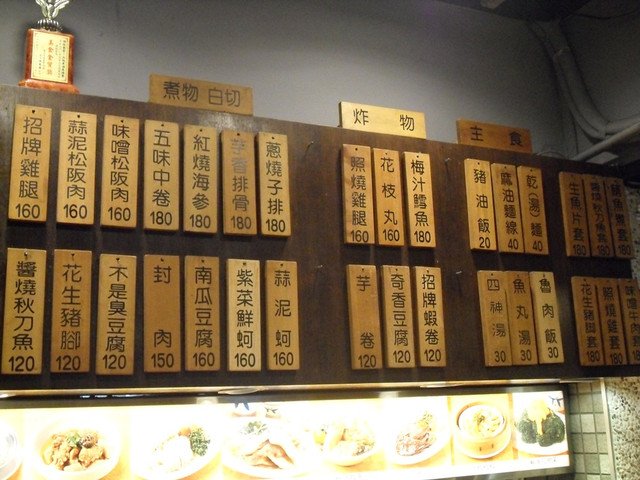 煮物 白切
炸物
主食
招牌雞腿 160
蒜泥松阪肉 160
味噌松阪肉 160
五味中卷 180
紅燒海參 180
芋香排骨 180
蔥燒子排 180
照燒雞腿 160
花枝丸 160
梅汁鱈魚 180
豬油飯 20
麻油麵線 40
乾(湯)麵 40
生魚片套 180
醬燒秋刀魚套 180
醬燒秋刀魚 120
花生豬腳 120
不是臭豆腐 120
封肉 150
南瓜豆腐 160
紫菜鮮蚵 160
蒜泥蚵 160
芋卷 120
奇香豆腐 120
招牌蝦卷 120
四神湯 30
魚丸湯 30
魯肉飯 30
花生豬腳套 180
照燒雞套 180